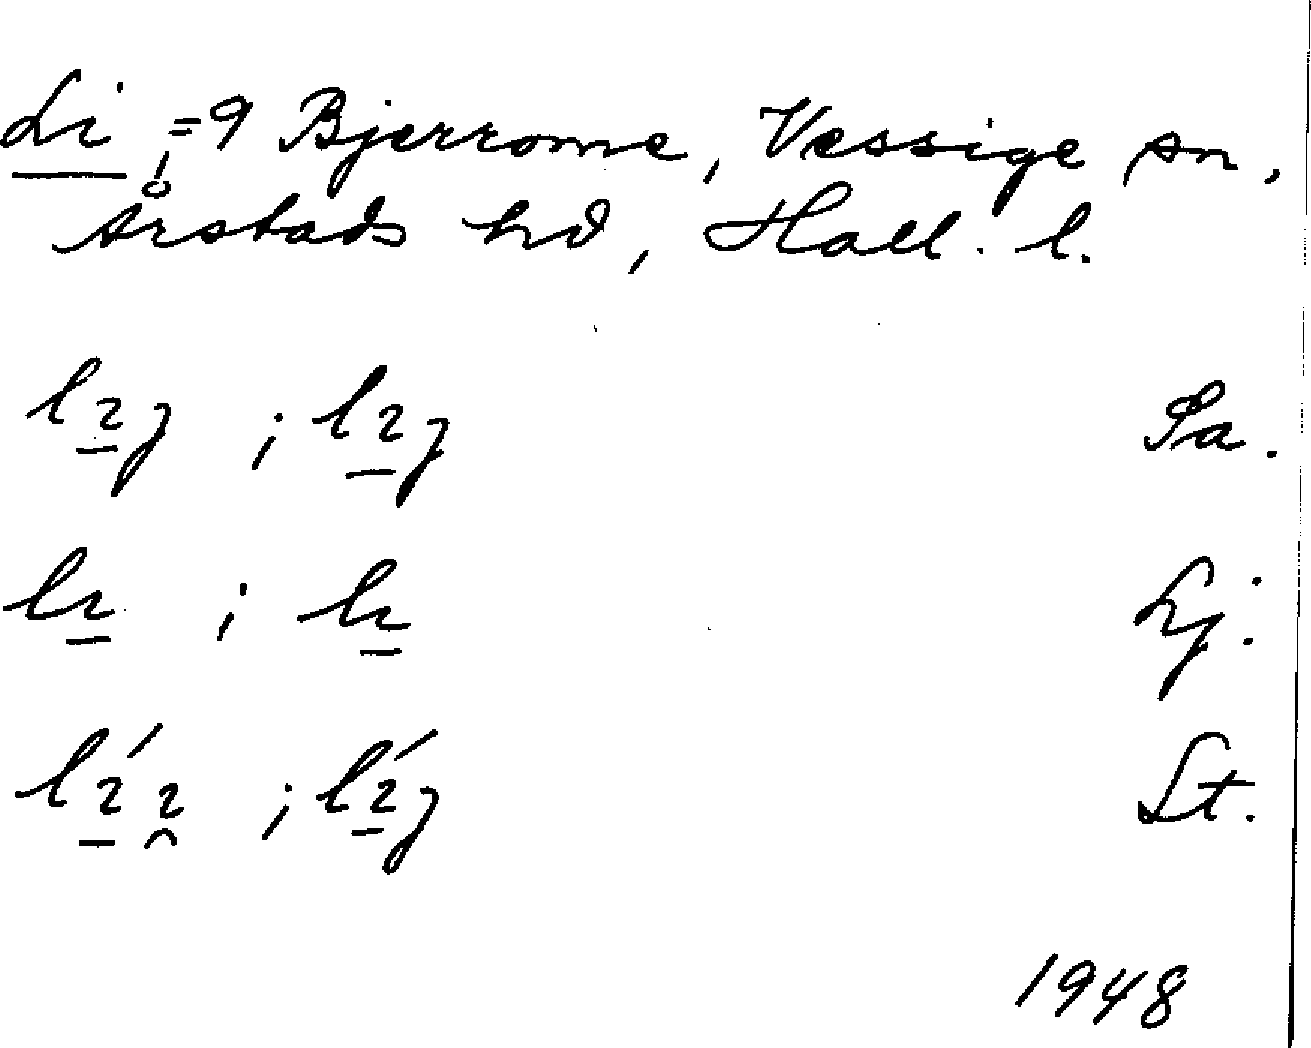 Li, =9 Bjerrome, Vessige sn,
Årstads hd, Hall. l.
lɪ̱j ; lɪ̱j Sa.
lɪ̱ ; lɪ̱ Lj.
lɪ̱́ɪ̯ ; lɪ̱́j St.
1948